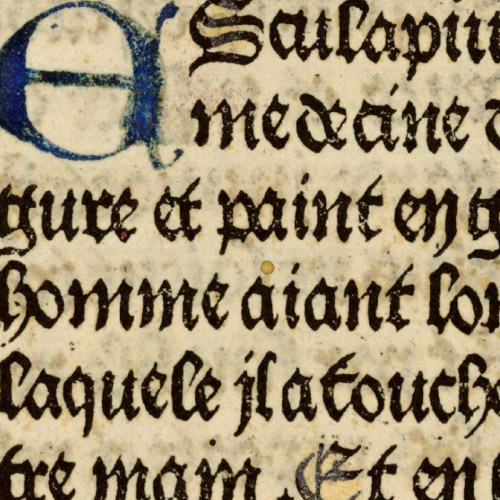 ESculapiu
medecine d
gure et paint en g
homme aiant lon
laquele il a touche
tre main. Et en